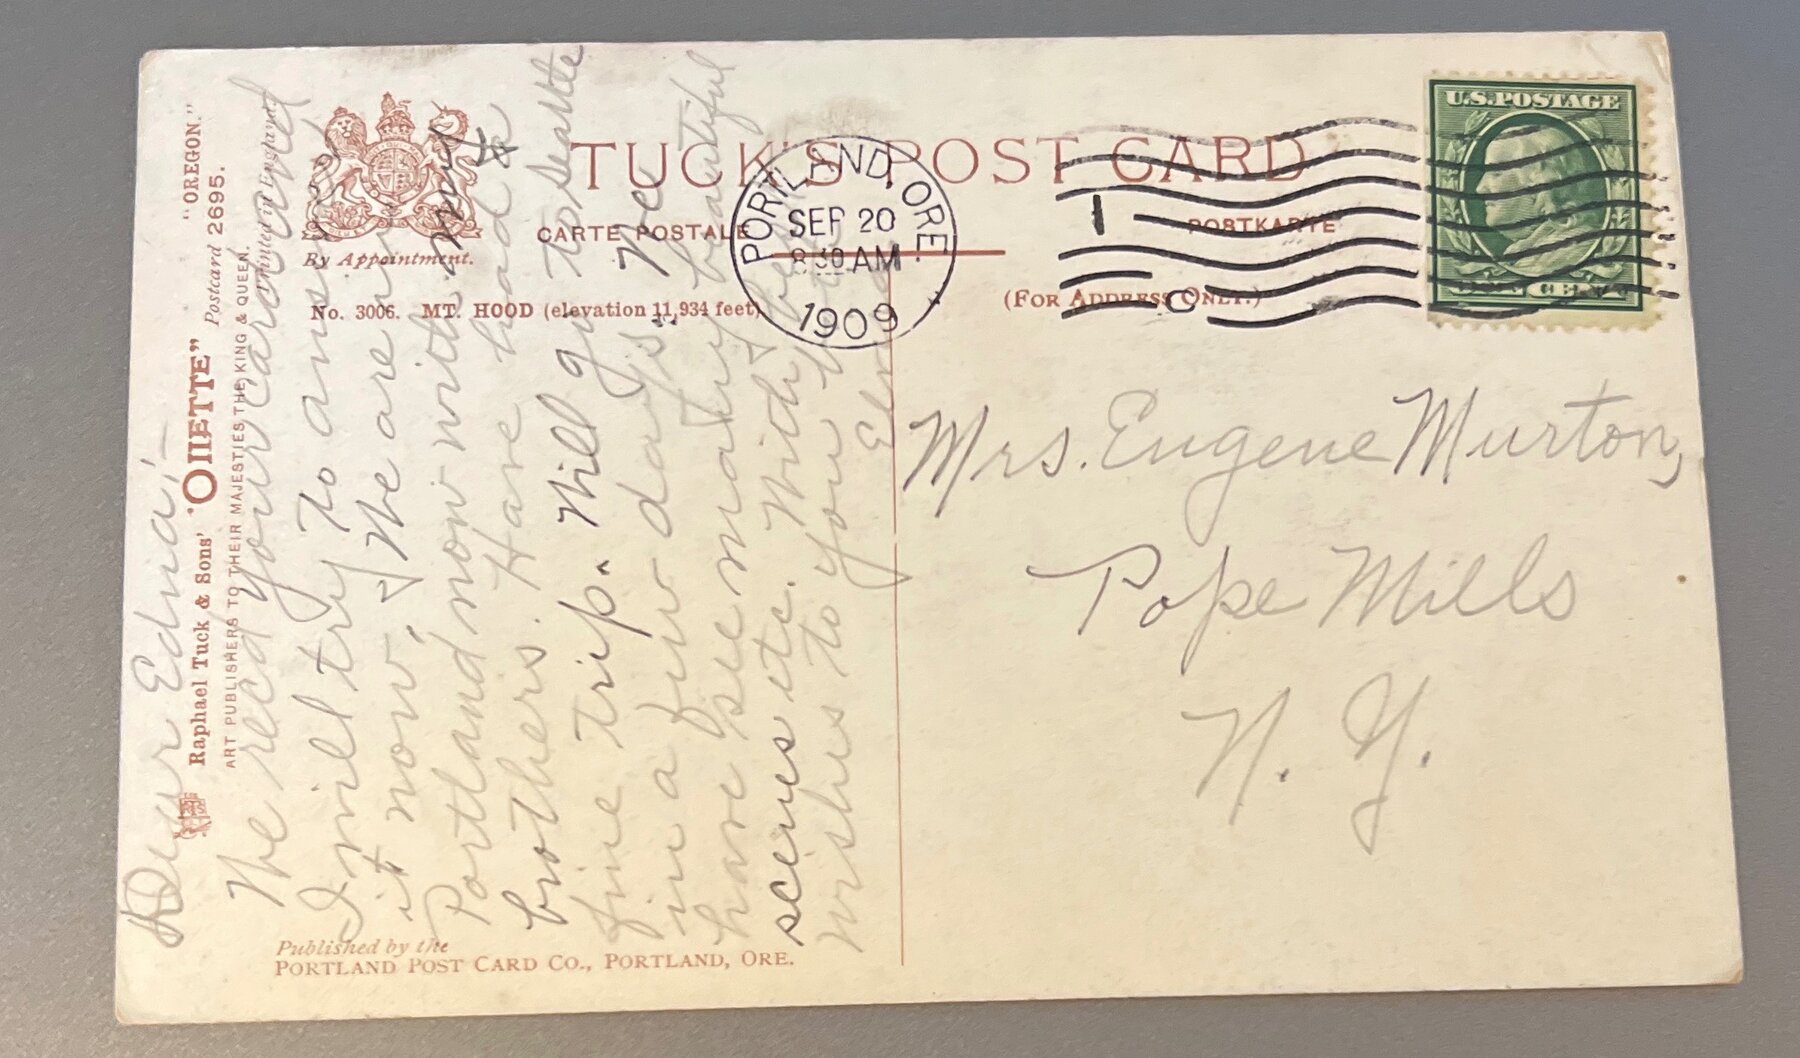 TUCK'S POST CARD
CARTE POSTALE
POSTKARTE
(FOR ADDRESS ONLY.)
By Appointment.
No. 3006. MT. HOOD (elevation 11,934 feet).
"OREGON."
Postcard 2695.
Raphael Tuck & Sons' "OILETTE"
ART PUBLISHERS TO THEIR MAJESTIES THE KING & QUEEN.
Printed in England
Published by the
PORTLAND POST CARD Co., PORTLAND, ORE.
PORTLAND, ORE.
SEP 20
8 30 AM
1909
1
C
U.S. POSTAGE
ONE CENT
Dear Edna;-
We rec'd your card and
I will try to answer
it now. We are in
Portland now with
brothers. Have had a
fine trip. Will go to Seattle
in a few days. We
have seen many beautiful
scenes etc. With best
wishes to you
Mrs. Eugene Murton,
Pope Mills
N. Y.